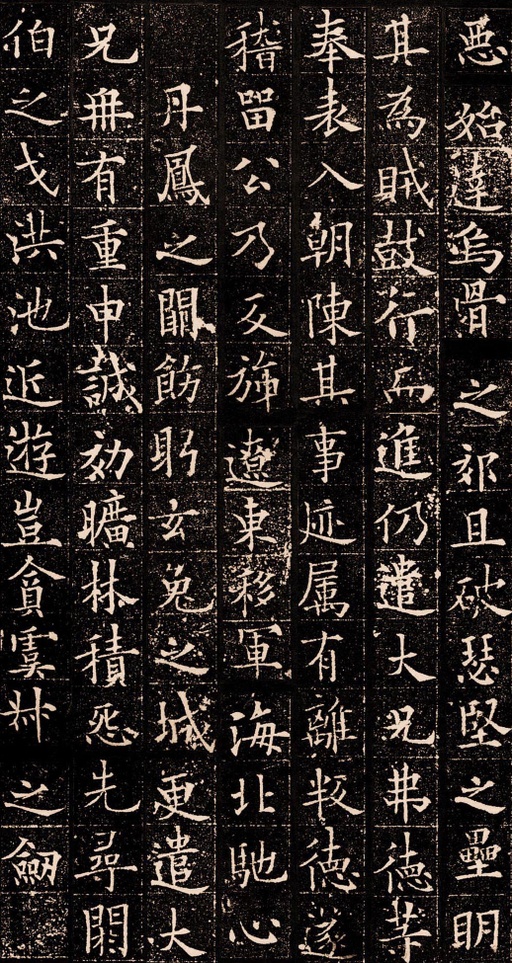 悪始達烏骨之郊且破瑟堅之壘明
其為賊鼓行而進仍遣大兄弗德等
奉表入朝陳其事迹属有離叛德遂
稽留公乃反旆遼東移軍海北馳心
丹鳳之闕飭躬玄菟之城更遣大
兄冉有重申誠効曠林積怨先尋閼
伯之戈洪池近遊豈貪虞叔之劔